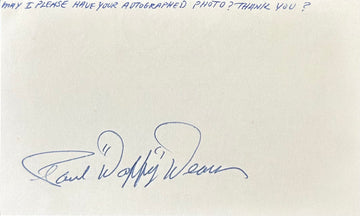 MAY I PLEASE HAVE YOUR AUTOGRAPHED PHOTO? THANK YOU?
Paul "Daffy" Dean